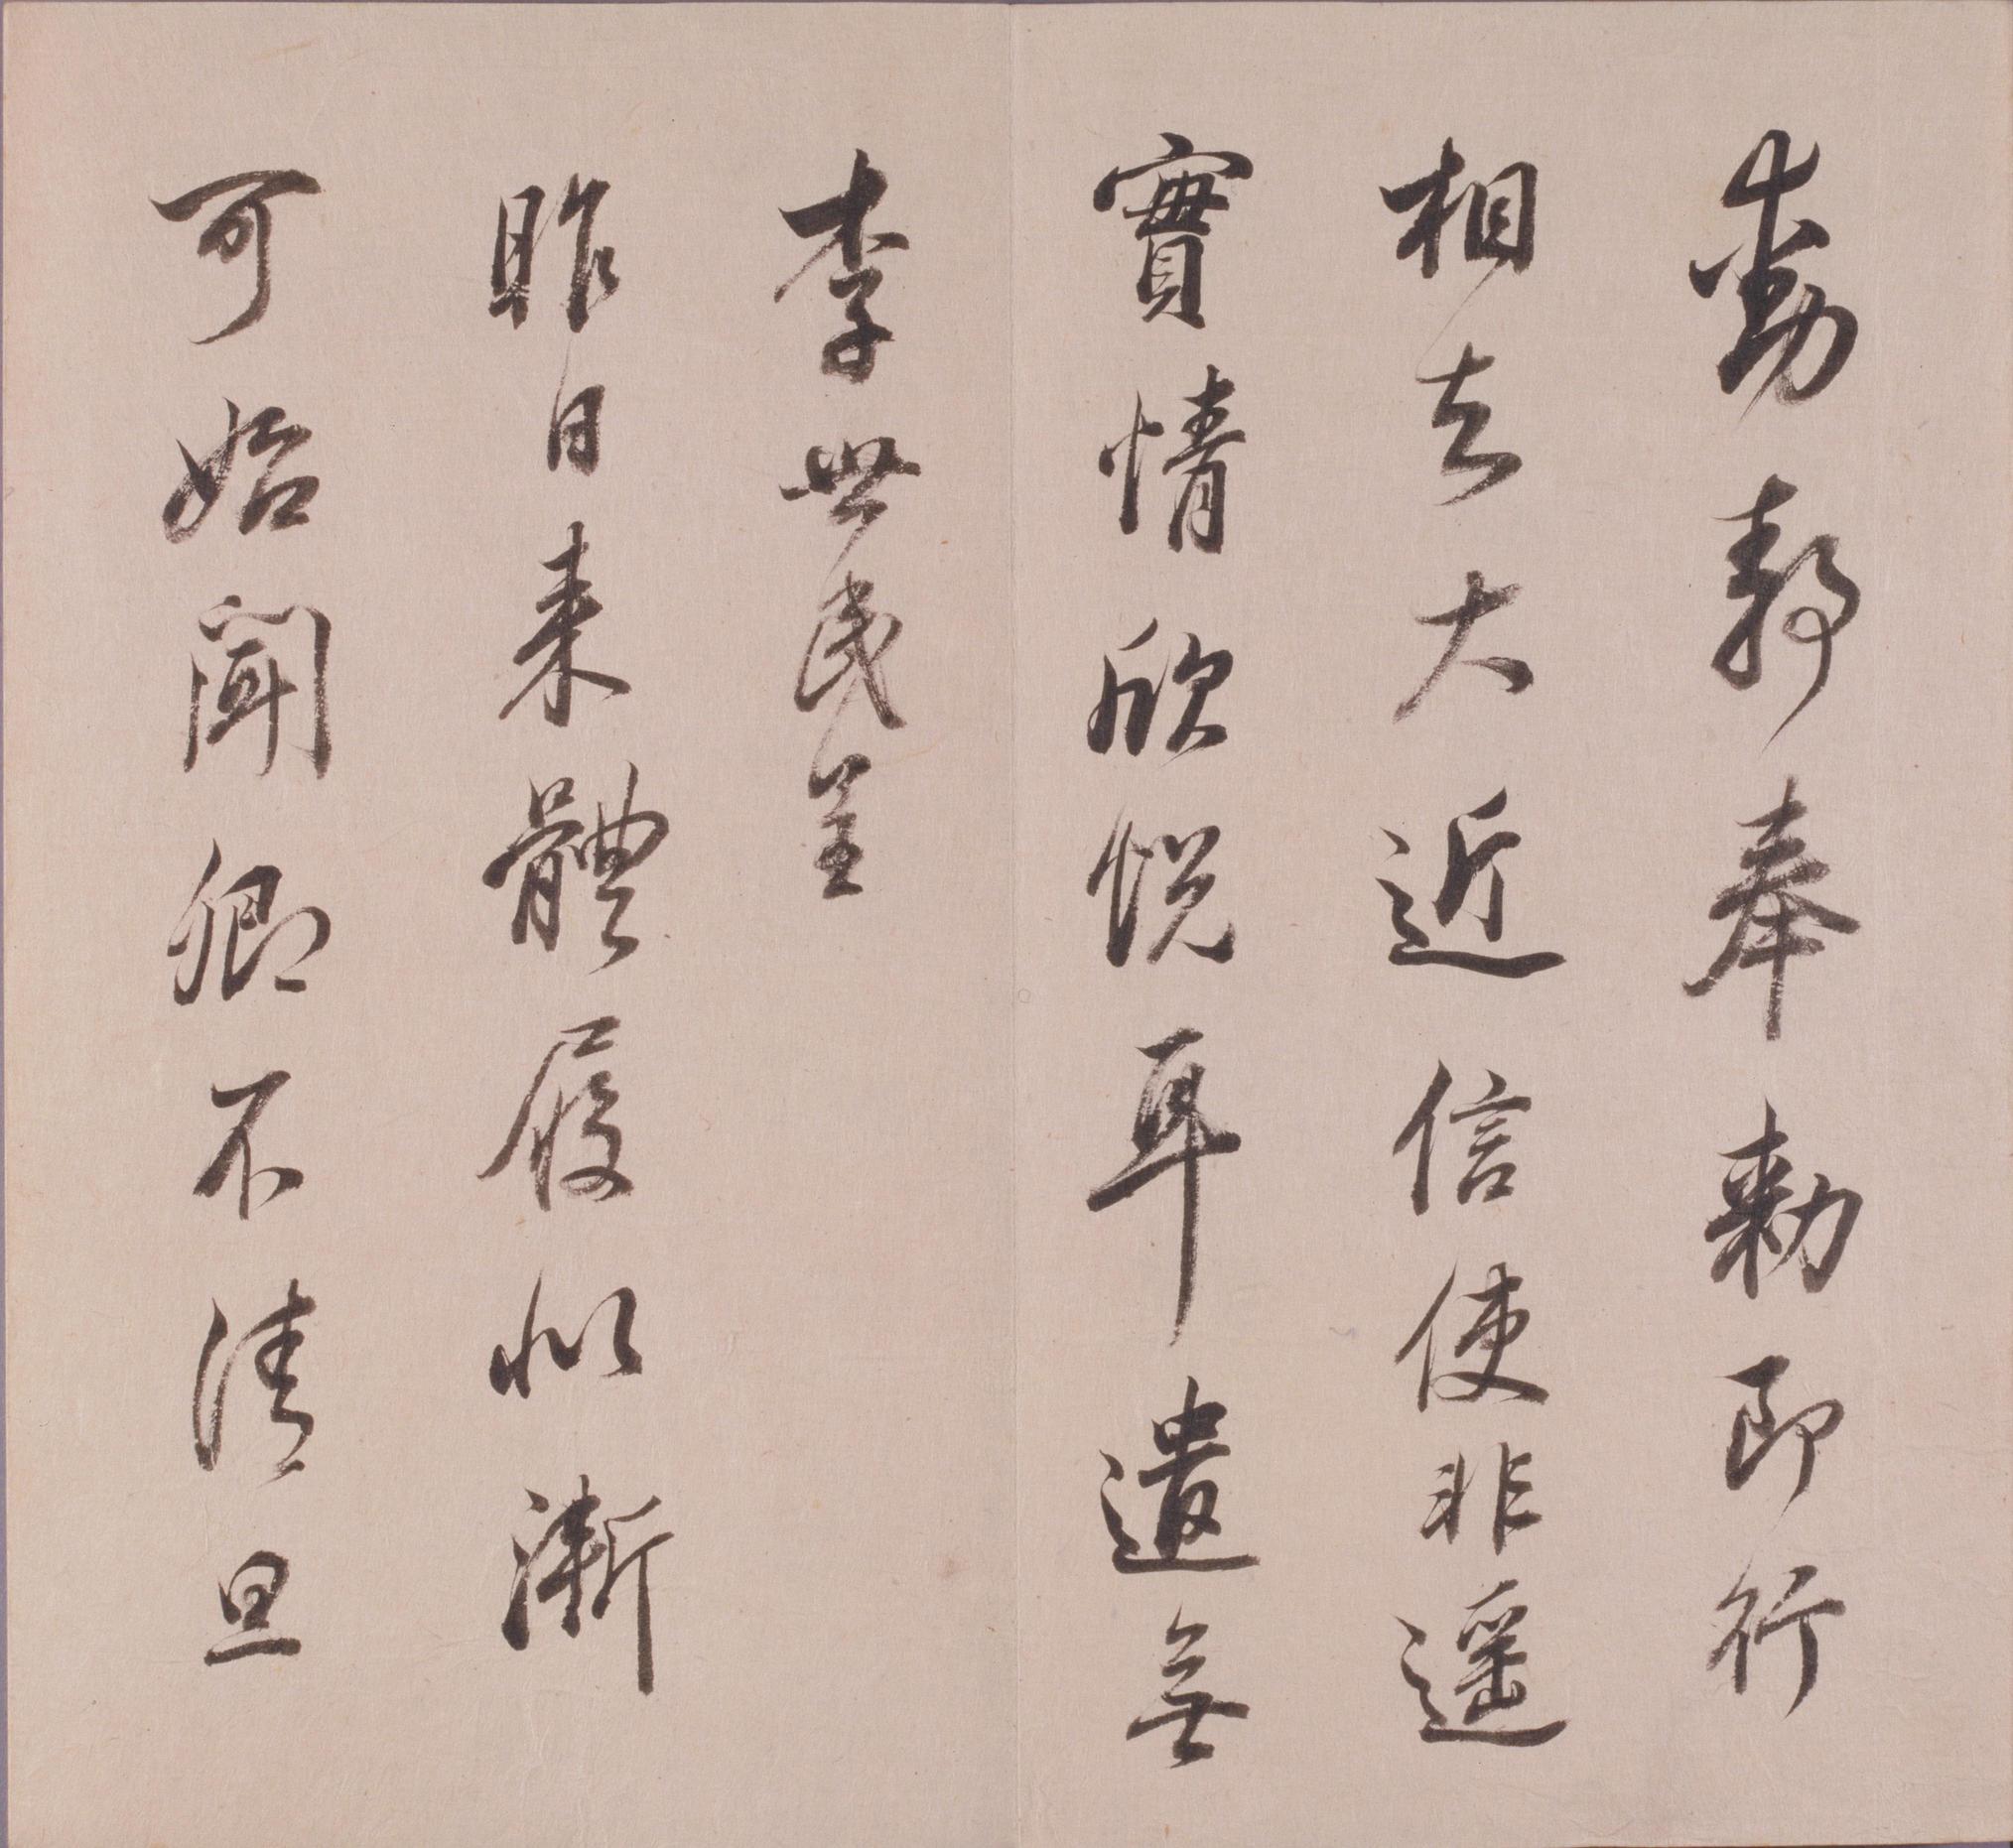 動靜奉勅即行
相去大近信使非遥
實情欣悦耳遣無
李世民呈
昨日来體履似漸
可始聞卿不清旦